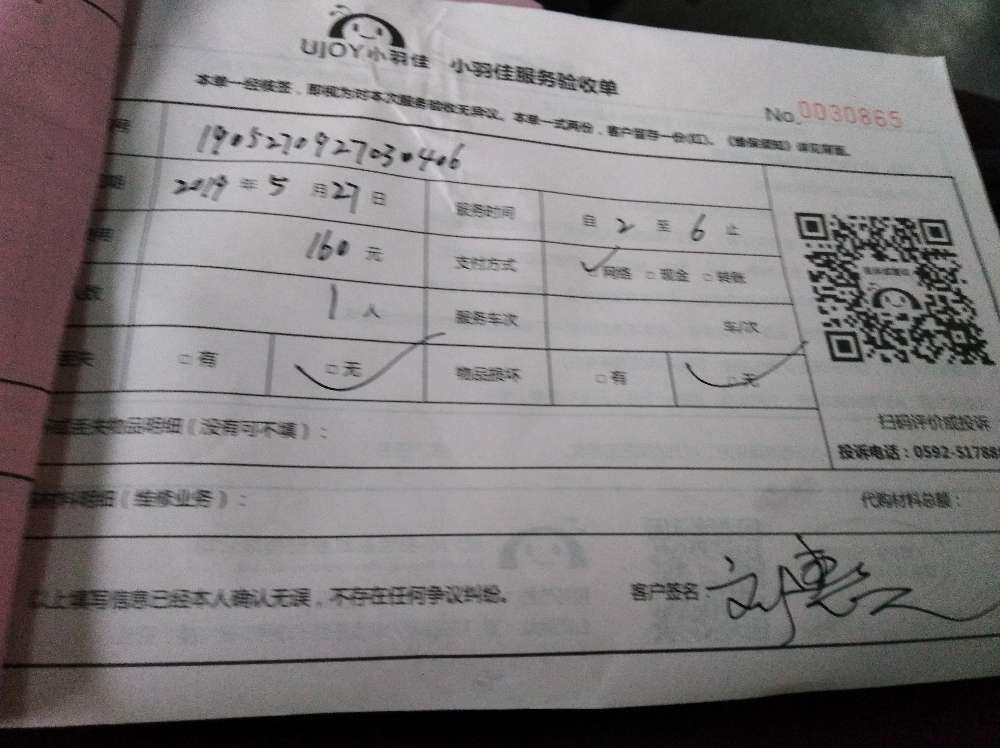 UJOY小羽佳 小羽佳服务验收单
本单一经核签，即视为对本次服务验收无异议。本单一式两份，客户留存一份(红)。《维保须知》详见背面。
No.0030865
号 1905270927030406
2019年5月27日 服务时间 自2至6止
160元 支付方式 ✓网络 □现金 □转账
人数 1人 服务车次 车/次
丢失 □有 □无 物品损坏 □有 □无
丢失物品明细（没有可不填）：
扫码评价或投诉
投诉电话：0592-51788
材料明细（维修业务）： 代购材料总额：
以上填写信息已经本人确认无误，不存在任何争议纠纷。 客户签名